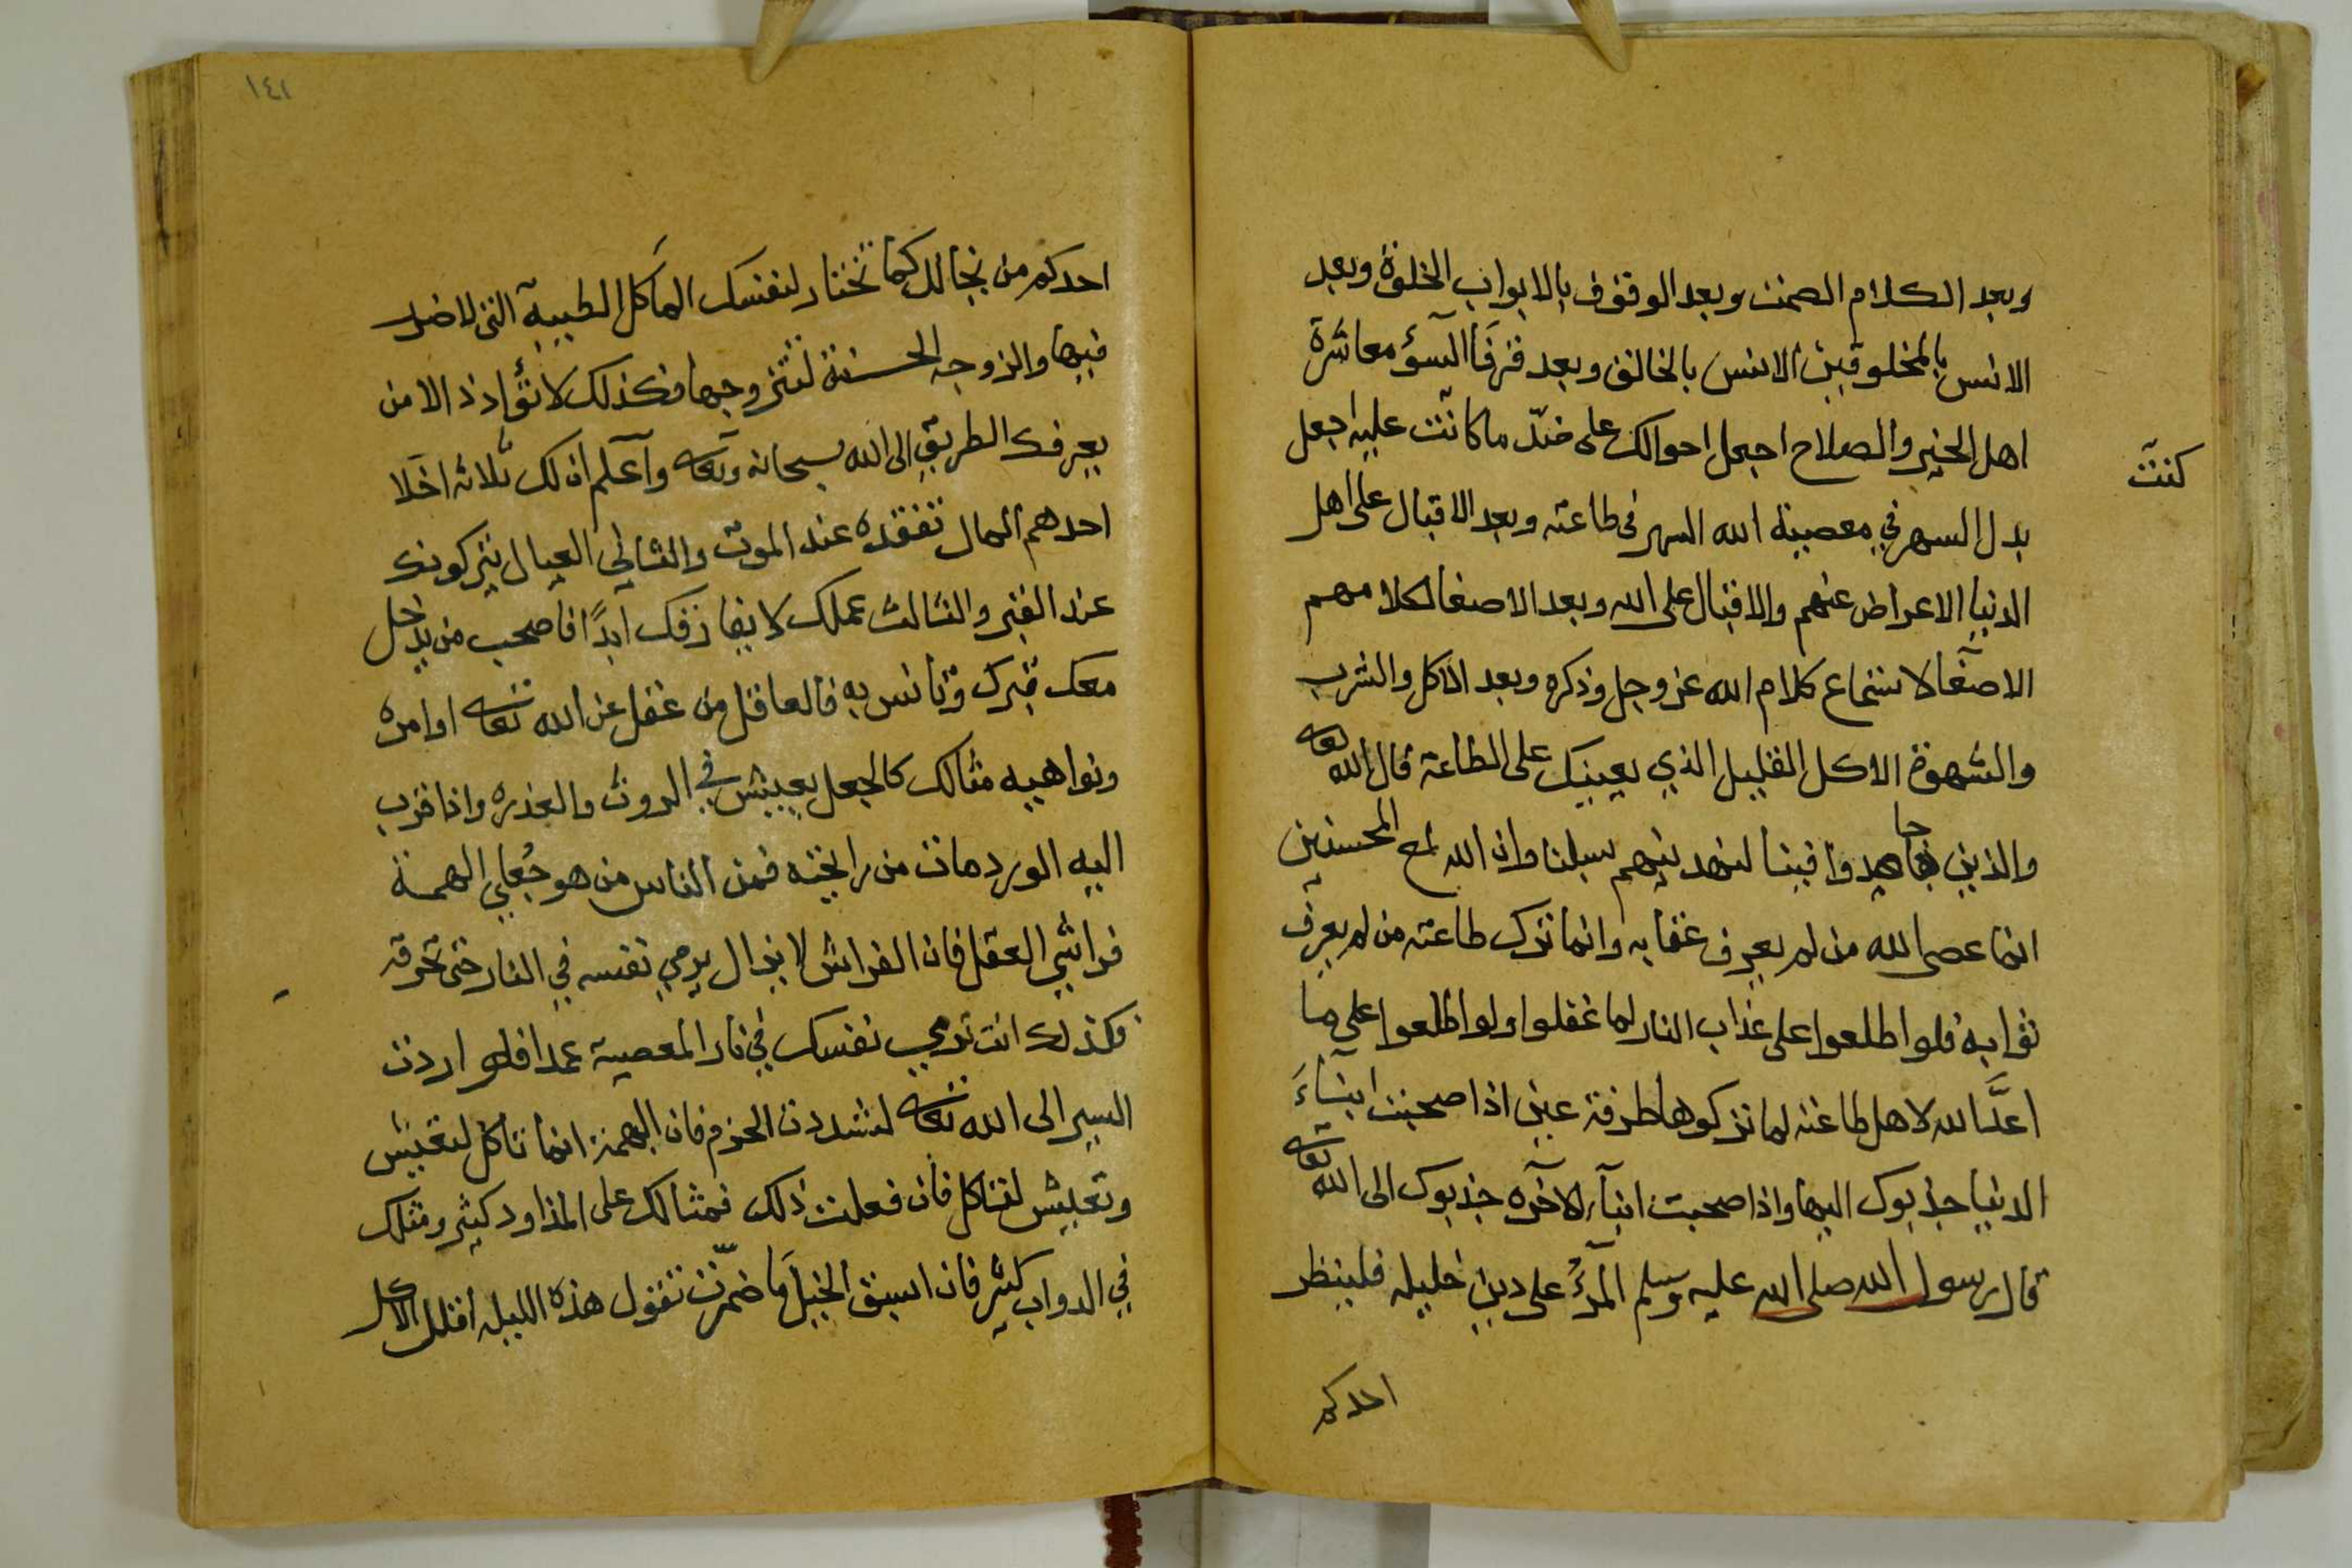 وبعد الكلام الصمت وبعد الوقوف بالابواب الخلوة وبعد
الانس بالمخلوقين الانس بالخالق وبعد قرنا السؤ معاشرة
اهل الخير والصلاح اجعل احوالك على ضد ما كانت عليه اجعل
كنت
بدل السهر في معصية الله السهر في طاعته وبعد الاقبال على اهل
الدنيا الاعراض عنهم والاقبال على الله وبعد الاصغا لكلامهم
الاصغا لاستماع كلام الله عز وجل وذكره وبعد الاكل والشرب
والشهوة الاكل القليل الذي يعينك على الطاعة قال الله تعالى
والذين جاهدوا فينا لنهدينهم سبلنا وان الله لمع المحسنين
انما عصى الله من لم يعرف عقابه وانما ترك طاعته من لم يعرف
ثوابه فلوا طلعوا على عذاب النار لما غفلوا ولوا طلعوا على ما
اعدَّ الله لاهل طاعته لما تركوها طرفة عين اذا صحبت ابناءَ
الدنيا جذبوك اليها واذا صحبت ابناء الآخره جذبوك الى الله تعالى
قال رسول الله صلى الله عليه وسلم المرءُ على دين خليله فلينظر
احدكم
١٤١
احدكم من يخالل كما تختار لنفسك المآكل الطيبة التي لا ضرر
فيها والزوجه الحسنة لتتزوجها فكذلك لا تؤادذ الا من
يعرفك الطريق الى الله سبحانه وتعالى وآعلم ان لك ثلاثه اخلا
احدهم المال تفقده عند الموت والثاني العيال يتركونك
عند القبر والثالث عملك لا يفارقك ابدًا فاصحب من يدخل
معك قبرك وتانس به فالعاقل من عقل عن الله تعالى اوامره
ونواهيه مثالك كالجعل يعيش في الروث والعذره واذا قرب
اليه الورد مات من رايحته فمن الناس من هو جُعلي الهمة
فراشي العقل فان الفراش لا يزال يرمي نفسه في النار حتى تحرقه
وكذلك انت ترمي نفسك في نار المعصية عمدا فلو اردت
السير الى الله تعالى لشددت الحزم فان البهمة انما تاكل لتعيش
وتعيش لتاكل فان فعلت ذلك فمثالك على المذاود كثير ومثلك
في الدواب كثير فان اسبق الخيل ما ضمّرت تقول هذه الليله اقلل الاكل